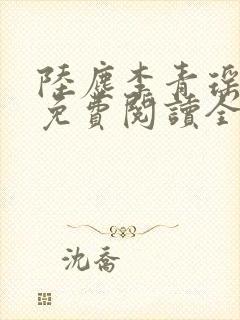 陸塵李青瑤
免費閱讀全
沈喬